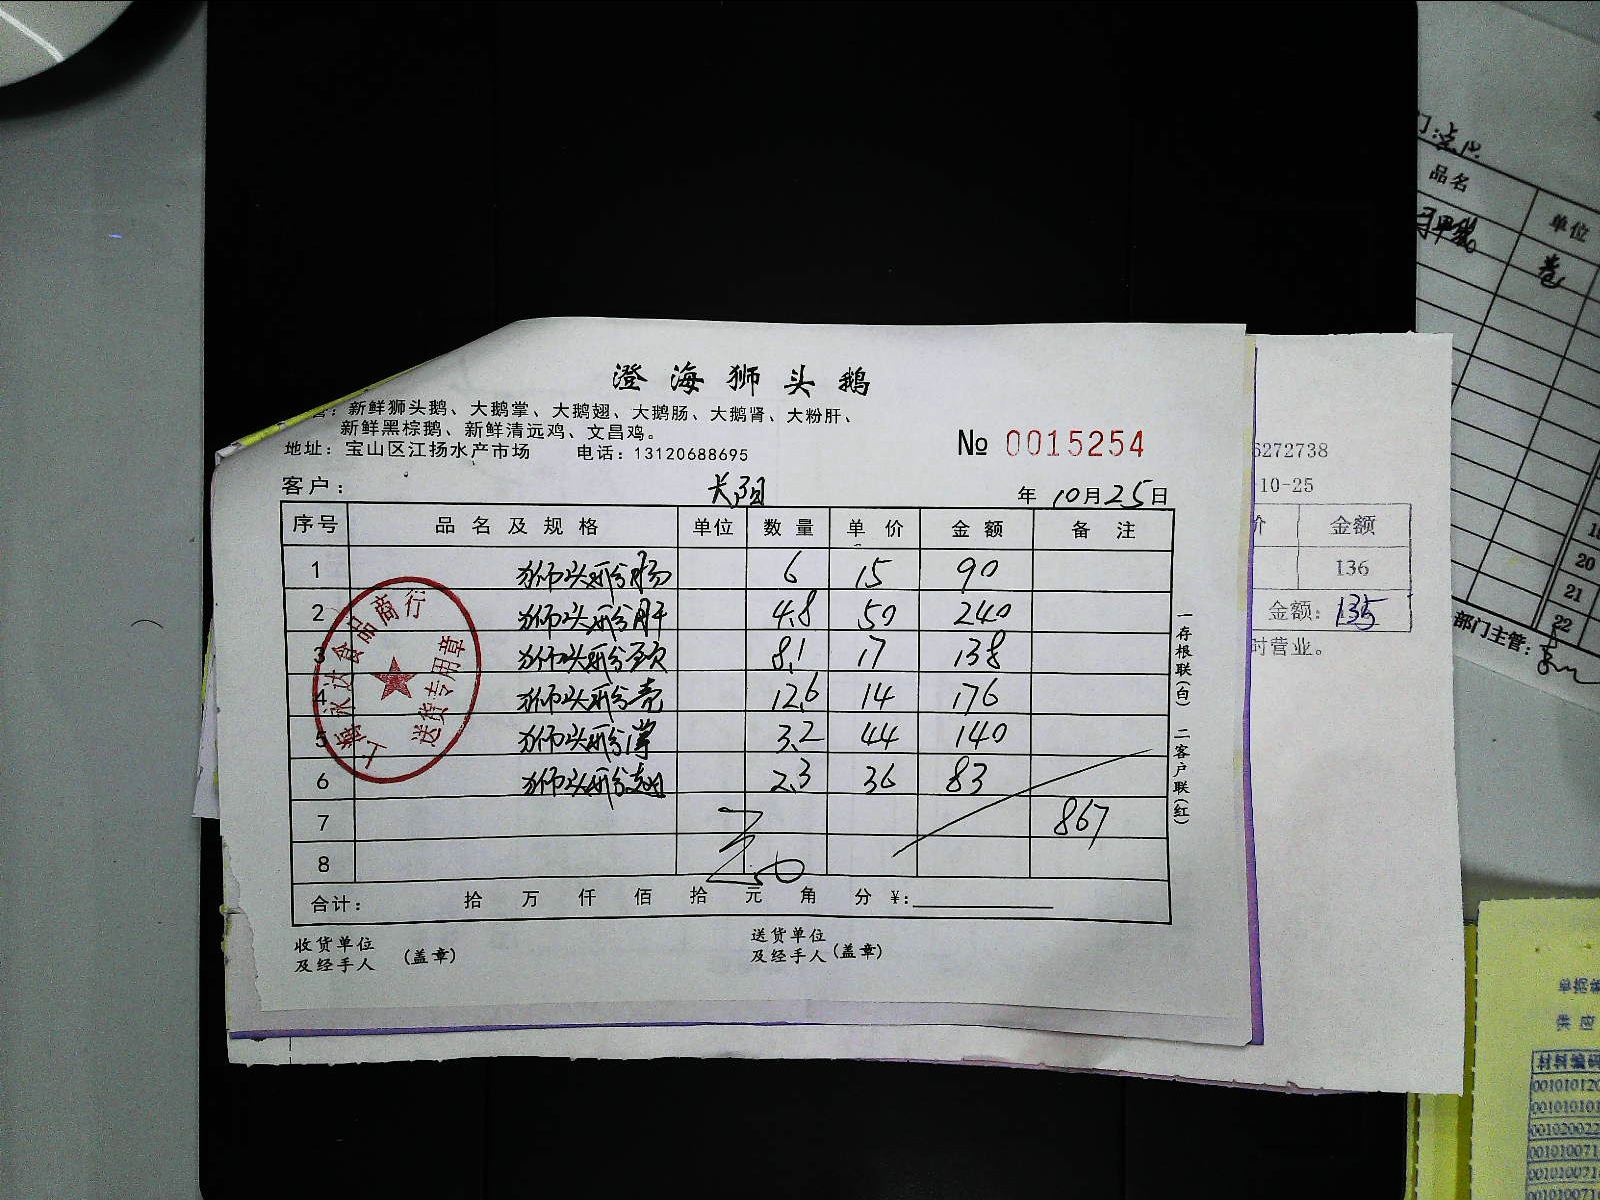 澄海狮头鹅
营：新鲜狮头鹅、大鹅掌、大鹅翅、大鹅肠、大鹅肾、大粉肝、
新鲜黑棕鹅、新鲜清远鸡、文昌鸡。
地址：宝山区江扬水产市场 电话：13120688695
№ 0015254
客户： 长阳 年 10月25日
序号 品名及规格 单位 数量 单价 金额 备注
1 狮头鹅肠 6 15 90
2 狮头鹅肝 4.8 50 240
3 狮头鹅颈 8.1 17 138
4 狮头鹅壳 12.6 14 176
5 狮头鹅掌 3.2 44 140
6 狮头鹅翅 2.3 36 83
7 867
8
合计： 拾 万 仟 佰 拾 元 角 分 ¥:
收货单位
及经手人 (盖章)
送货单位
及经手人 (盖章)
一存根联(白) 二客户联(红)
上海永达食品商行
送货专用章
6272738
-10-25
价 金额
136
金额: 135
时营业。
品名 单位
卷
20
21
22
部门主管：
单据编
供应
材料编码
00101012
00101010
00102002
00101007
00101007
00101007